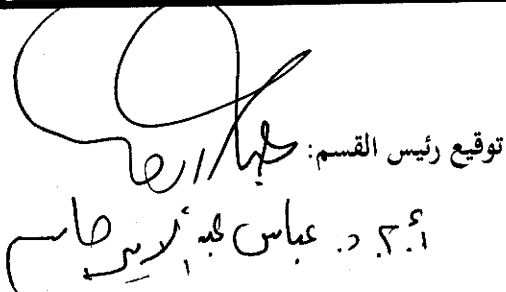 توقيع رئيس القسم:
أ.م.د. عباس عبد الأمير جاسم